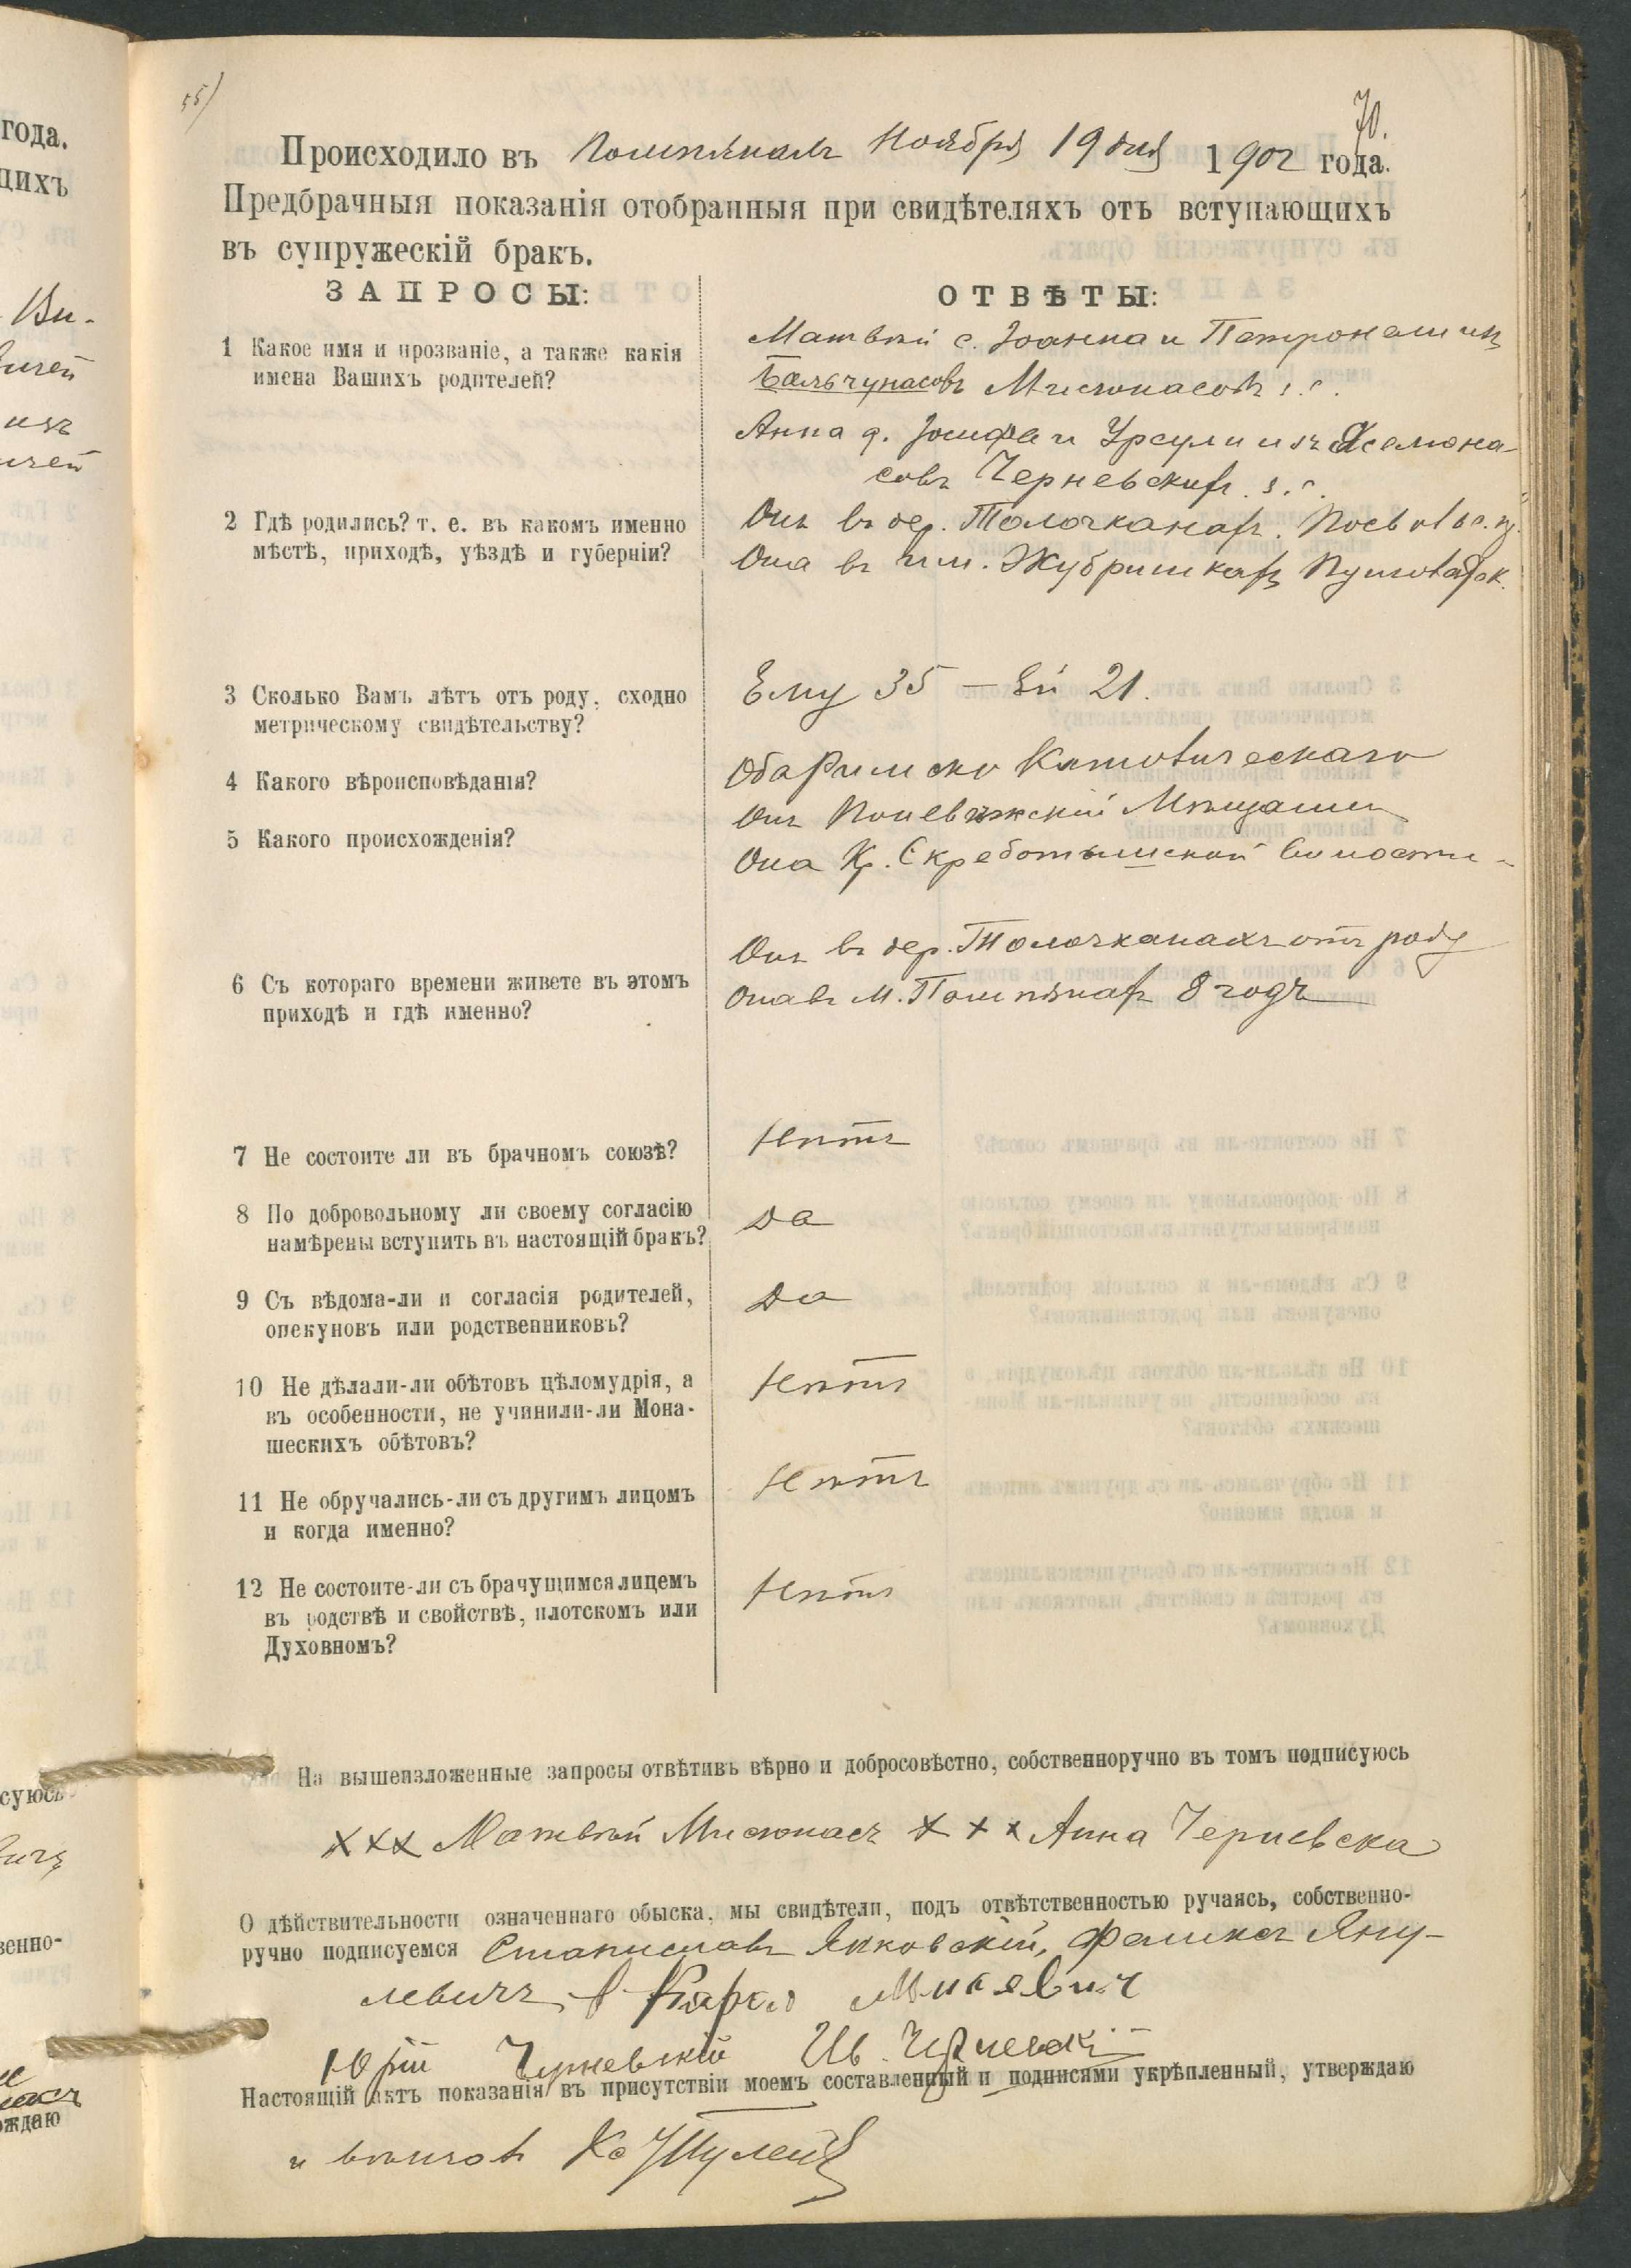 55)
70.
Происходило въ Помпянахъ Ноября 19 дня 1902 года.
Предбрачныя показанія отобранныя при свидѣтеляхъ отъ вступающихъ
въ супружескій бракъ.
ЗАПРОСЫ:
ОТВѢТЫ:
1 Какое имя и прозваніе, а также какія
имена Вашихъ родителей?
Матвѣй с. Іоанна и Петронели изъ
Бальчунасовъ Мисюнасовъ з. с.
Анна д. Іосифа и Урсули изъ
совъ Черневскихъ з. с.
2 Гдѣ родились? т. е. въ какомъ именно
мѣстѣ, приходѣ, уѣздѣ и губерніи?
Онъ въ дер. Толочканахъ
Она въ им. Жубришкахъ
3 Сколько Вамъ лѣтъ отъ роду, сходно
метрическому свидѣтельству?
Ему 35 — Ей 21.
4 Какого вѣроисповѣданія?
Оба Римско Католическаго
5 Какого происхожденія?
Онъ Поневѣжскій Мѣщанинъ
Она Кр. Скреботышской волости
6 Съ котораго времени живете въ этомъ
приходѣ и гдѣ именно?
Онъ въ дер. Толочканахъ отъ роду
Она въ м. Помпянахъ 8 годъ
7 Не состоите ли въ брачномъ союзѣ?
Нѣтъ
8 По добровольному ли своему согласію
намѣрены вступить въ настоящій бракъ?
Да
9 Съ вѣдома-ли и согласія родителей,
опекуновъ или родственниковъ?
Да
10 Не дѣлали-ли обѣтовъ цѣломудрія, а
въ особенности, не учинили-ли Мона-
шескихъ обѣтовъ?
Нѣтъ
11 Не обручались-ли съ другимъ лицомъ
и когда именно?
Нѣтъ
12 Не состоите-ли съ брачущимся лицемъ
въ родствѣ и свойствѣ, плотскомъ или
Духовномъ?
Нѣтъ
На вышеизложенные запросы отвѣтивъ вѣрно и добросовѣстно, собственноручно въ томъ подписуюсь
xxx Матвѣй Мисюнасъ x x x Анна Черневска
О дѣйствительности означеннаго обыска, мы свидѣтели, подъ отвѣтственностью ручаясь, собственно-
ручно подписуемся Станиславъ Янковскій, Феликсъ Яну-
левичъ
Юрій Чурневскій Ив. Чурневскій
Настоящій актъ показанія въ присутствіи моемъ составленный и подписями укрѣпленный, утверждаю